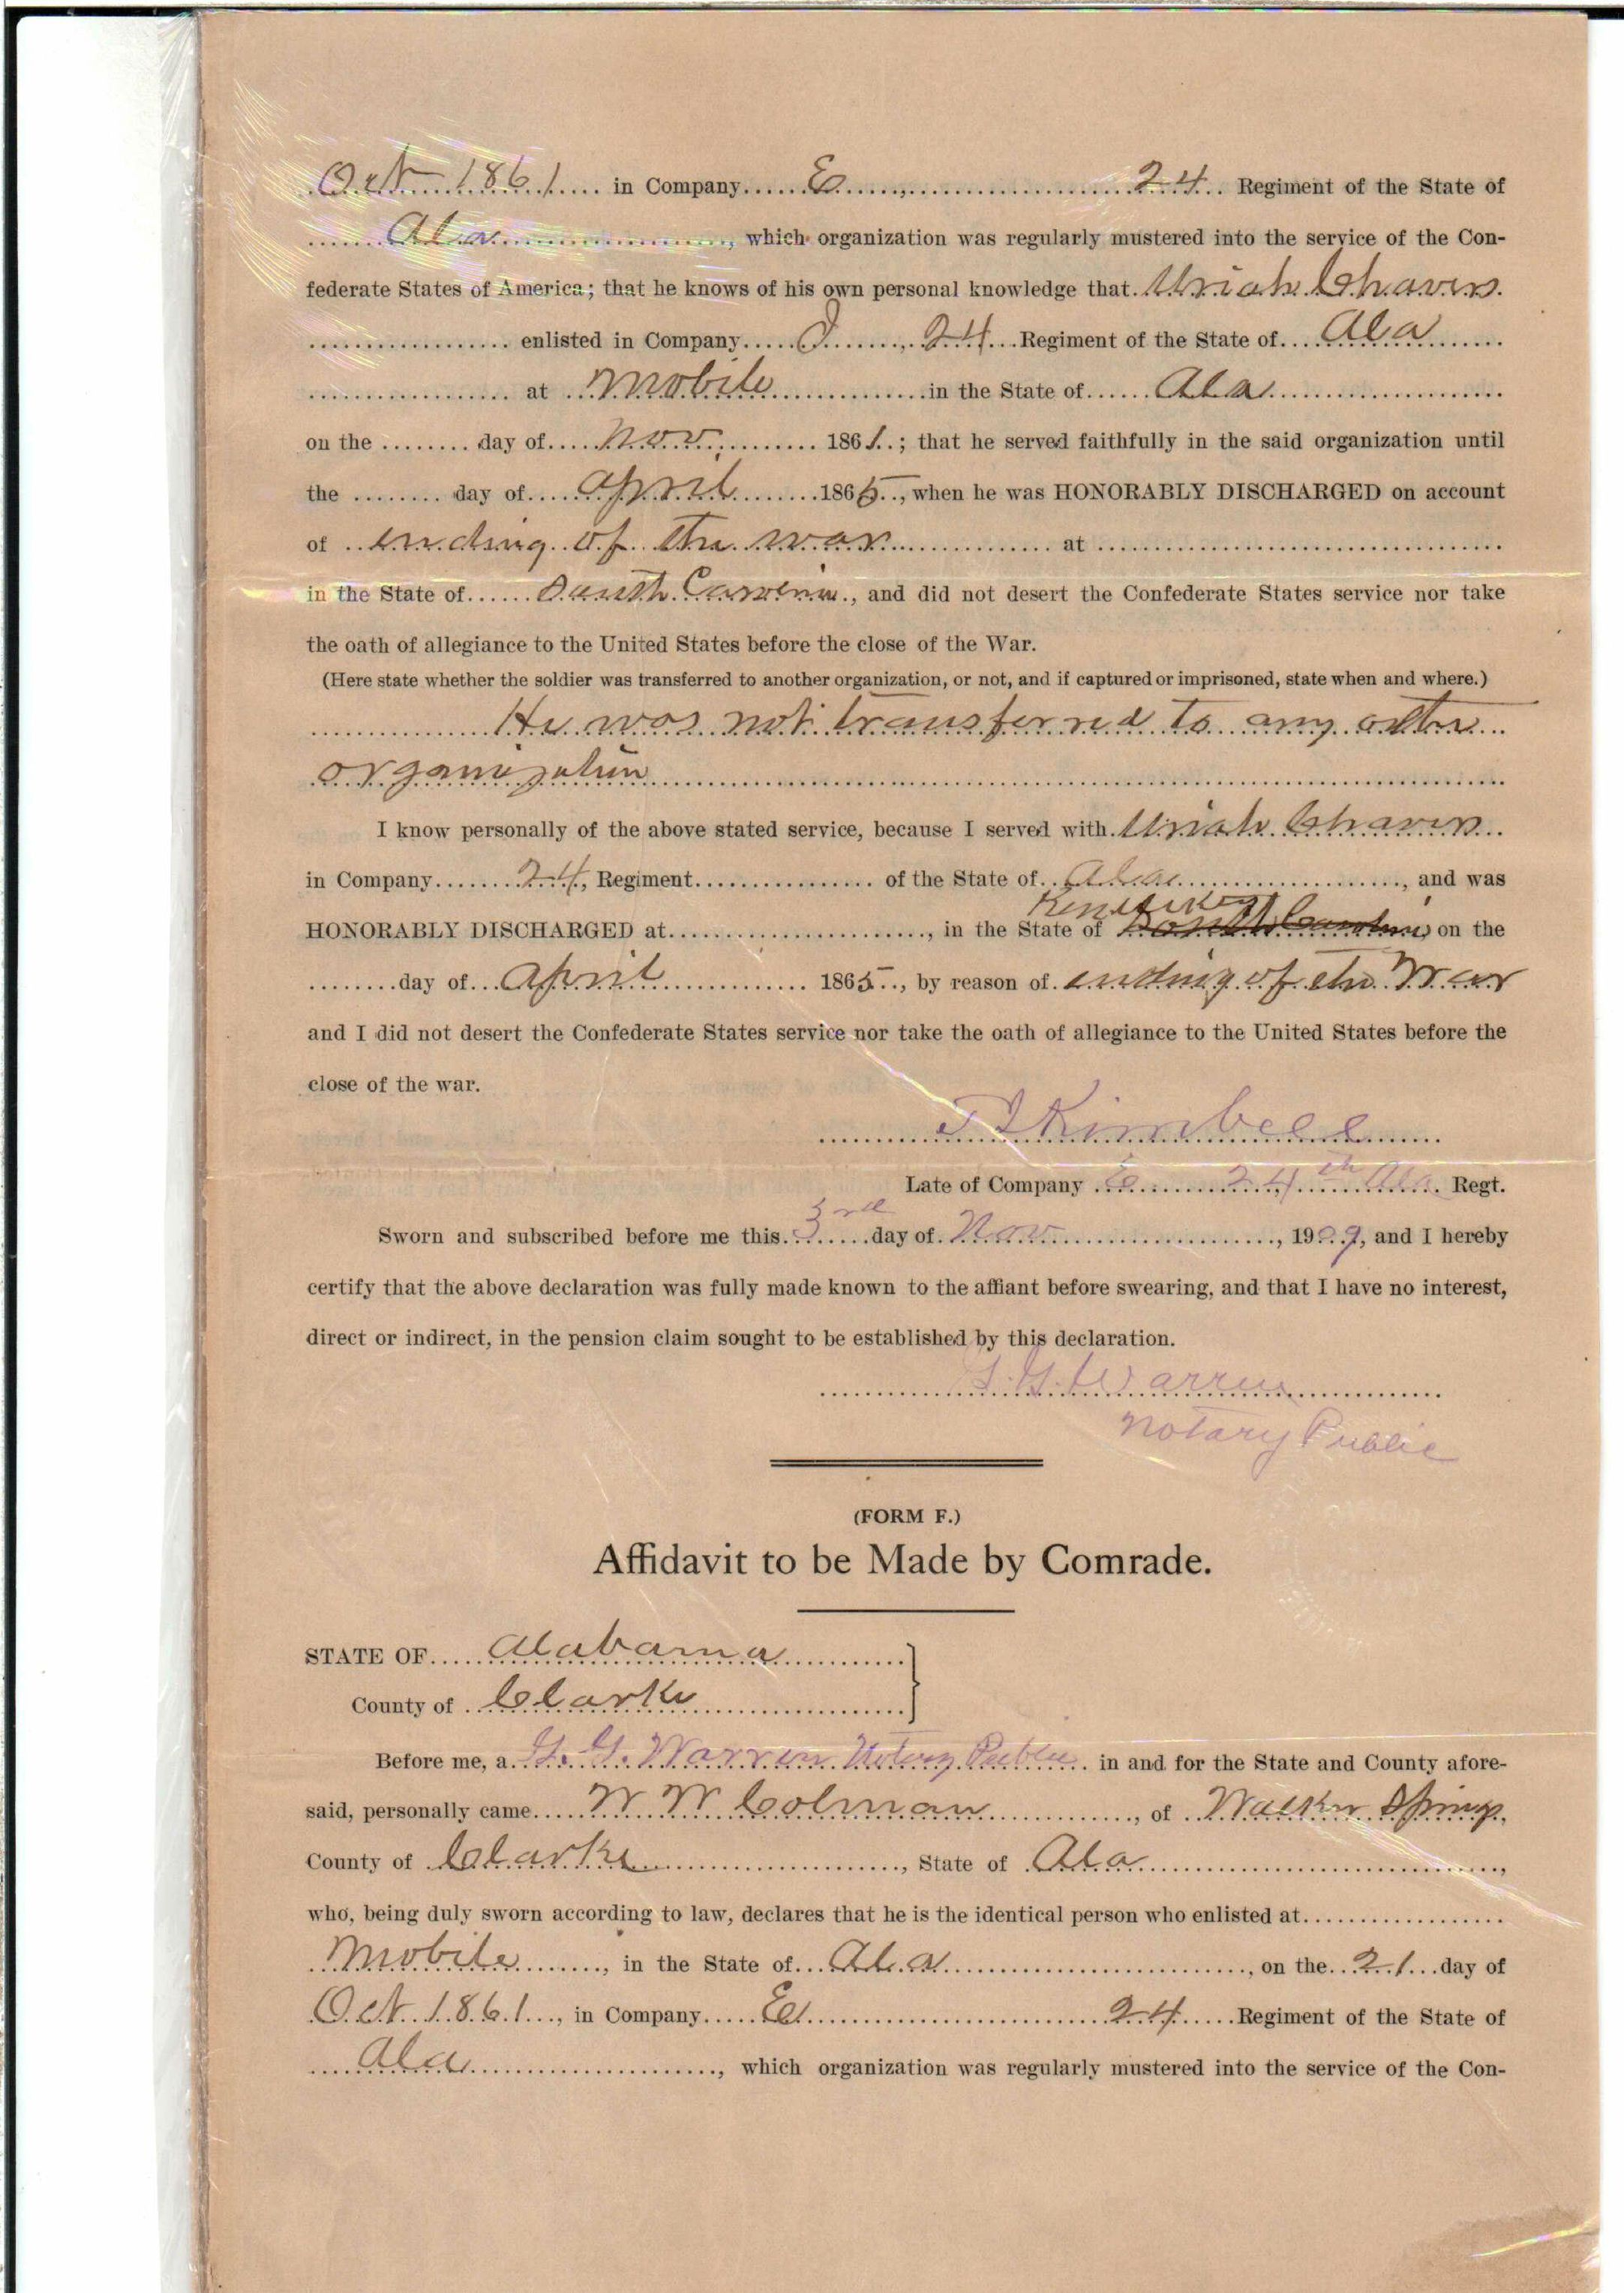 Oct 1861 in Company E, 24 Regiment of the State of
Ala, which organization was regularly mustered into the service of the Con-
federate States of America; that he knows of his own personal knowledge that Uriah Chavers
enlisted in Company I, 24 Regiment of the State of Ala
at Mobile in the State of Ala
on the day of Nov. 1861.; that he served faithfully in the said organization until
the day of April 1865, when he was HONORABLY DISCHARGED on account
of ending of the war at
in the State of South Carolina, and did not desert the Confederate States service nor take
the oath of allegiance to the United States before the close of the War.
(Here state whether the soldier was transferred to another organization, or not, and if captured or imprisoned, state when and where.)
He was not transferred to any other
organization
I know personally of the above stated service, because I served with Uriah Chavers
in Company 24, Regiment of the State of Ala, and was
HONORABLY DISCHARGED at, in the State of South Carolina on the
day of April 1865, by reason of ending of the War
and I did not desert the Confederate States service nor take the oath of allegiance to the United States before the
close of the war.
Kimbell
Late of Company E 24th Ala Regt.
Sworn and subscribed before me this 3rd day of Nov, 1909, and I hereby
certify that the above declaration was fully made known to the affiant before swearing, and that I have no interest,
direct or indirect, in the pension claim sought to be established by this declaration.
Warren
Notary Public
(FORM F.)
Affidavit to be Made by Comrade.
STATE OF Alabama
County of Clarke
Before me, a Warren Notary Public in and for the State and County afore-
said, personally came W W Colman, of Walker Springs,
County of Clarke, State of Ala,
who, being duly sworn according to law, declares that he is the identical person who enlisted at
Mobile, in the State of Ala, on the 21 day of
Oct 1861, in Company E 24 Regiment of the State of
Ala, which organization was regularly mustered into the service of the Con-